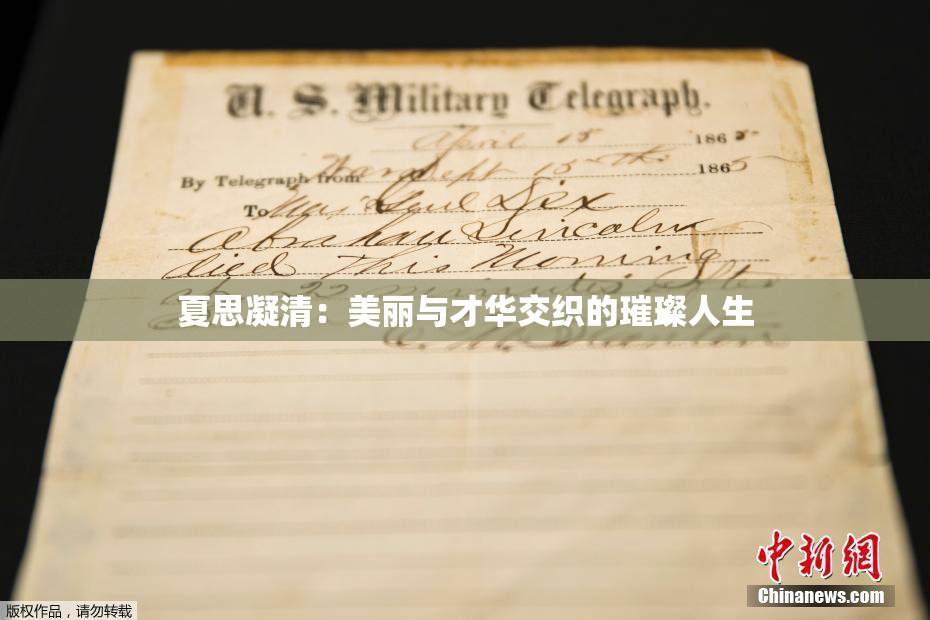 U. S. Military Telegraph.
April 15 1865
By Telegraph from War Dept 15th 1865
To Maj Genl Dix
Abraham Lincoln
died This Morning
at 22 minutes after
夏思凝清：美丽与才华交织的璀璨人生
E. M. Stanton
中新网
Chinanews.com
版权作品，请勿转载